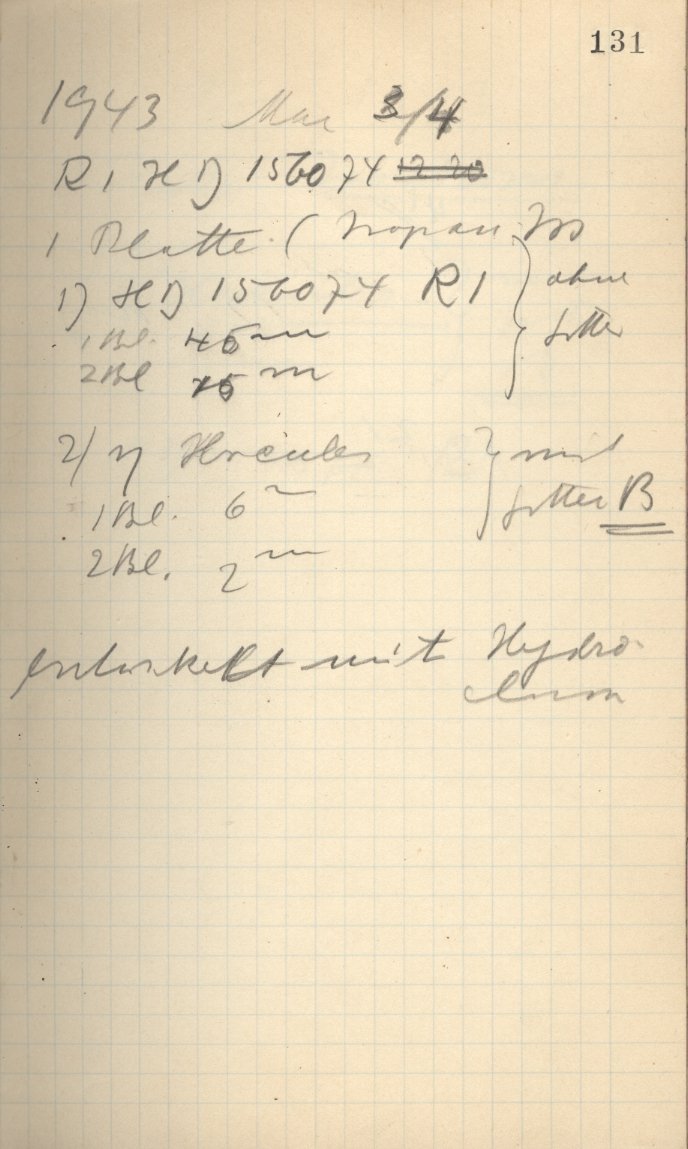 131
1943 Mai 3/4
R1 HD 156074 12 20
1 Platte (
1) HD 156074 R1 } ohne
1 Bl. 45 m filter
2 Bl 15 m
2) η Hercules } mit
1 Bl. 6 m filter B
2 Bl. 2 m
entwickelt mit Hydro-